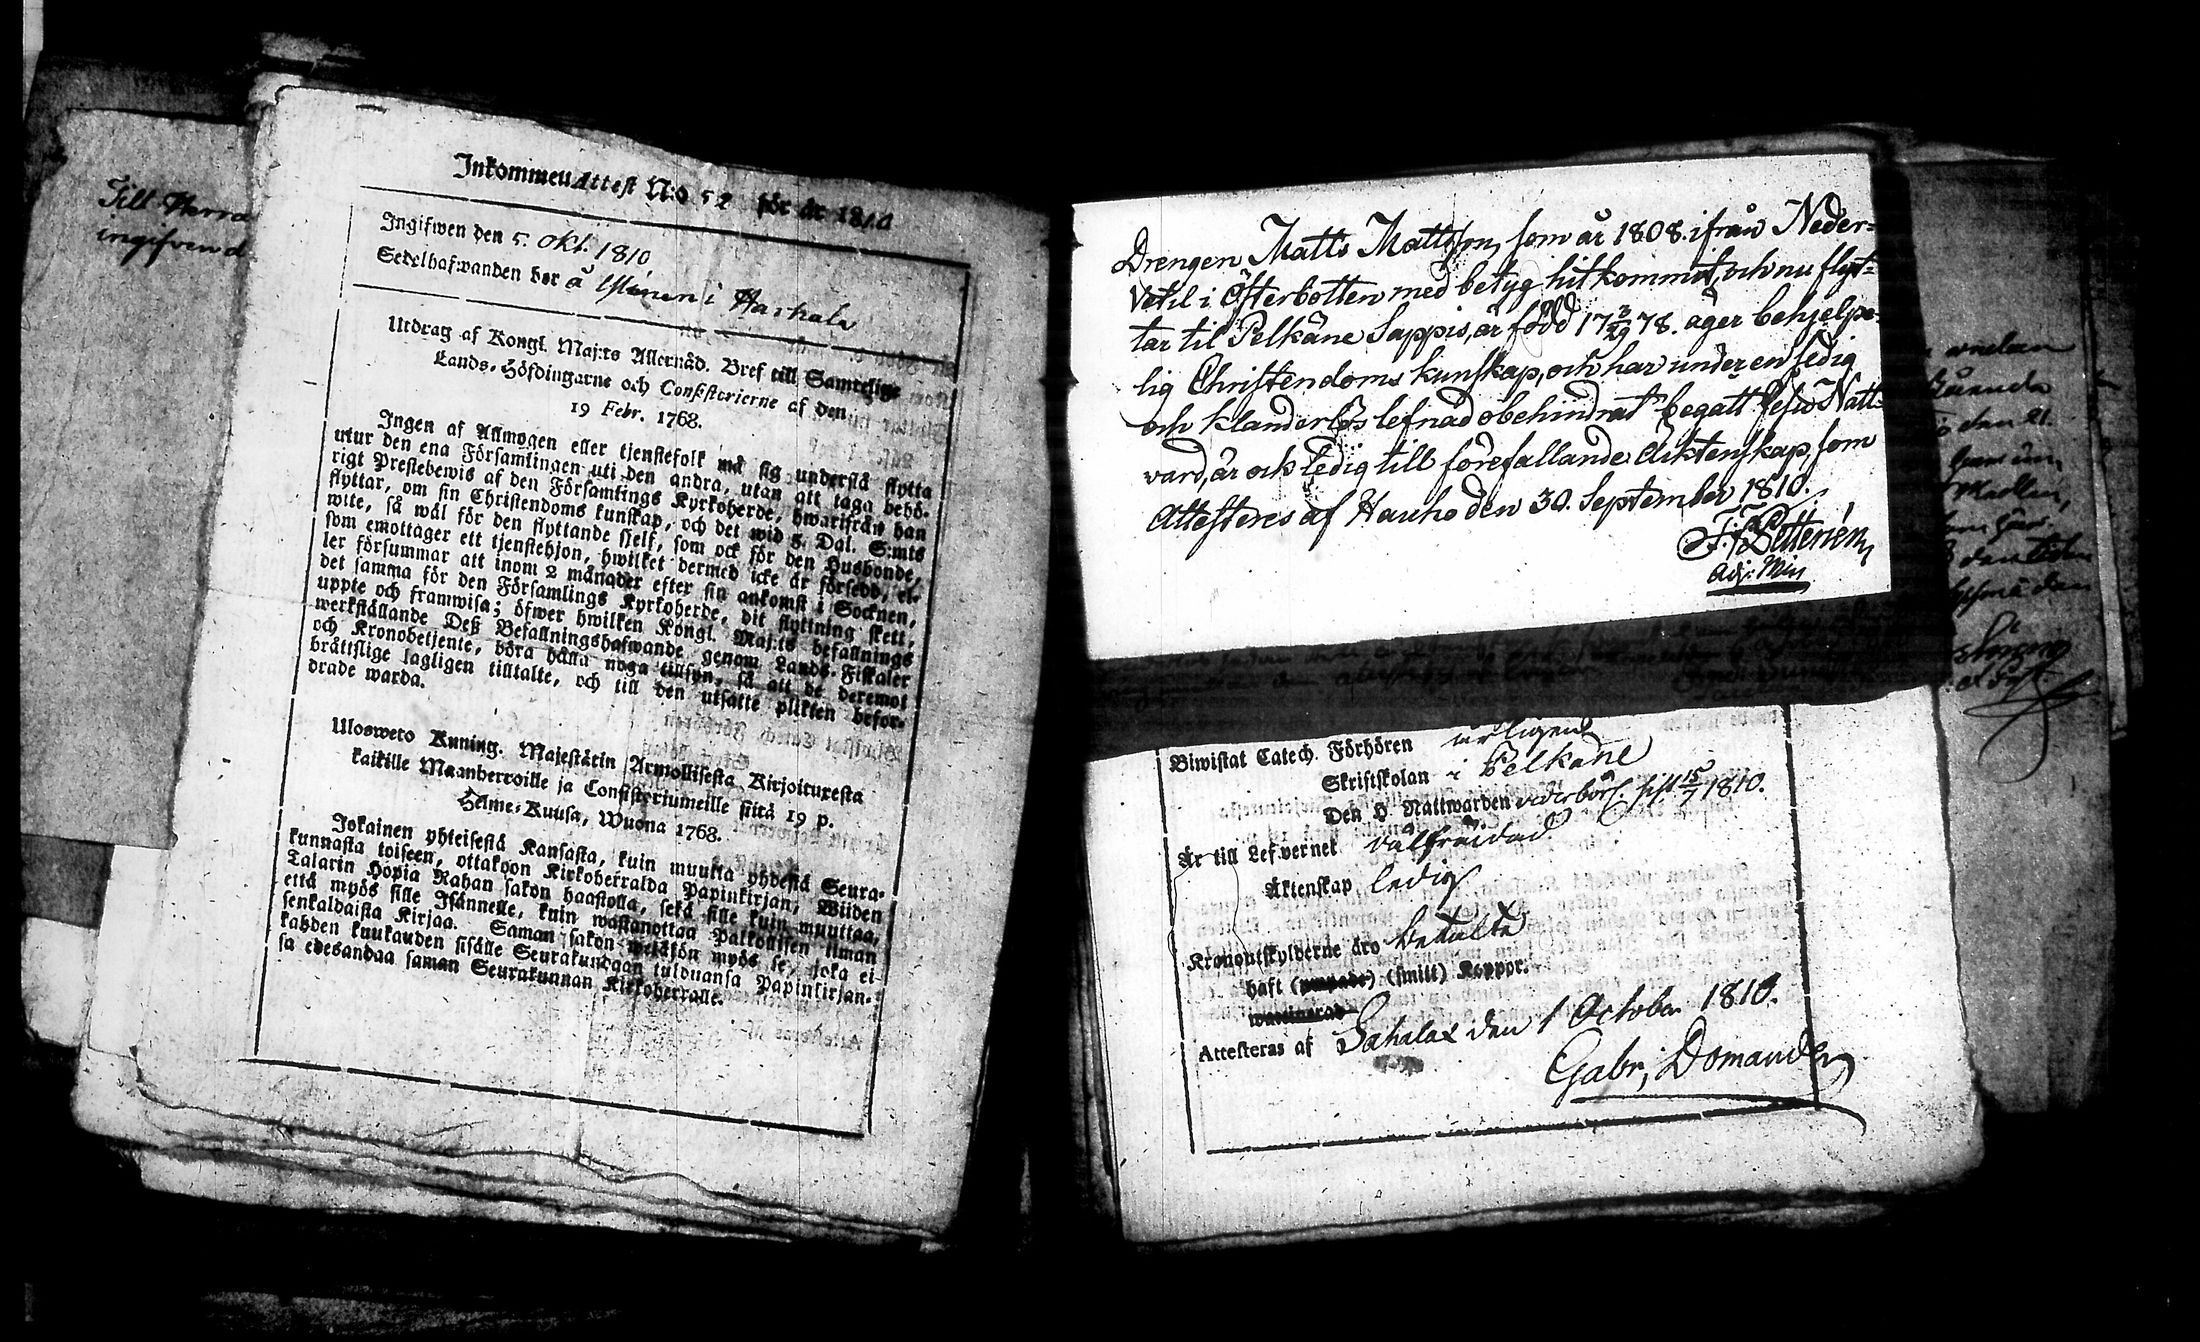 Till Herra
ingifvend
Inkommen Attest N:o 52 för år 1810
Ingifwen den 5. Okt. 1810
Sedelhafwanden bor å i Haihala
Utdrag af Kongl. Maj:ts Allernåd. Bref till Samtelige
Lands-Höfdingarne och Consistorierne af den
19 Febr. 1768.
Ingen af Allmogen eller tjenstefolk må sig understå flytta
utur den ena Församlingen uti den andra, utan att taga behö-
rigt Prestebewis af den Församlings Kyrkoherde, hwarifrån han
flyttar, om sin Christendoms kunskap, och det wid 5 Dal. S:mts
wite, så wäl för den flyttande sjelf, som ock för den Husbonde,
som emottager ett tjenstehjon, hwilket dermed icke är försedd, el-
ler försummar att inom 2 månader efter sin ankomst i Socknen,
det samma för den Församlings Kyrkoherde, dit flyttning skett,
uppte och framwisa; öfwer hwilken Kongl. Maj:ts befallnings
werkställande Deß Befallningshafwande genom Lands-Fiskaler
och Kronobetjente, böra hålla noga tillsyn, så att de deremot
bråttslige lagligen tilltalte, och till den utsatte plikten befor-
drade warda.
Ulosweto Kuning. Majestätin Armollisesta Kirjoituxesta
kaikille Maanherroille ja Consistoriumeille siitä 19 p.
Helme-Kuusa, Wuona 1768.
Jokainen yhteisestä Kansasta, kuin muutta yhdestä Seura-
kunnasta toiseen, ottakoon Kirkoherralda Papinkirjan, Wiiden
Talarin Hopia Rahan sakon haastolla, sekä sille kuin muuttaa,
että myös sille Isännelle, kuin wastanottaa Palkollisen ilman
senkaldaista Kirjaa. Saman sakon wetäkön myös se, joka ei
kahden kuukauden sisälle Seurakundaan tulduansa Papinkirjan-
sa edesandaa saman Seurakunnan Kirkoherralle.
Drengen Matts Mattsson, som år 1808. ifrån Neder-
Vetil i Österbotten med betyg hitkommit, och nu flyt-
tar til Pelkäne Sappis, är född 17 3/29 78. äger behjelpe-
lig Christendoms kunskap, och har under en sedig
och klanderlös lefnad obehindrat begått Jesu Natt-
vard, är ock ledig till förefallande Äktenskap, som
Attesteres af Hauho den 30. September 1810.
F. Zetterén
Adj: Min
Biwistat Catech. Förhören årligen
Skriftskolan i Pelkäne
Den H. Nattwarden vederbörl. sist 15/7 1810.
Är till Lefwernet välfräidad
Äktenskap ledig
Kronoutskylderne äro betalte
haft (smitt) Koppor.
Attesteras af Sahalax den 1 October 1810.
Gabr, Domander